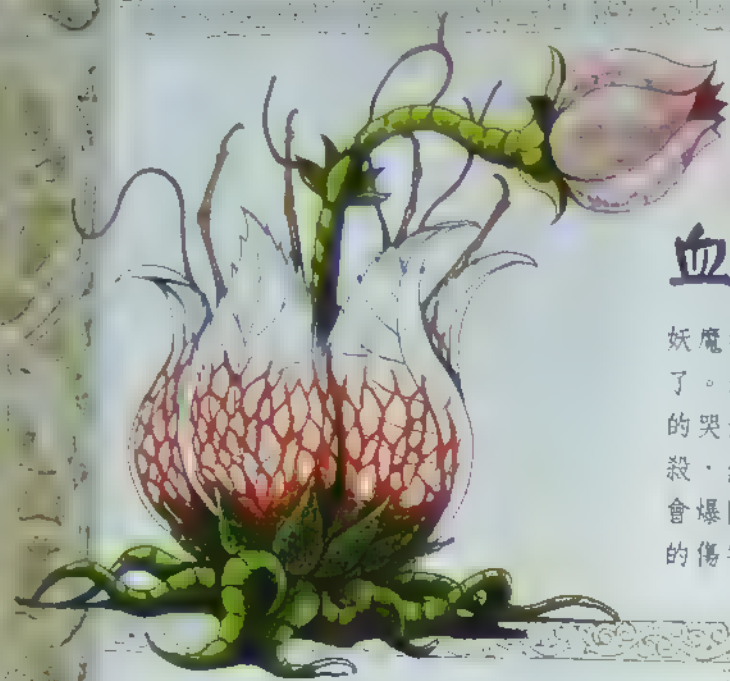 血
妖魔
了。
的哭
殺，
會爆
的傷